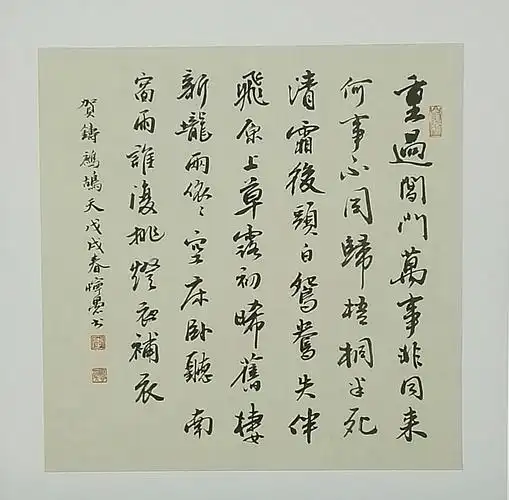 重過閶門萬事非同来
何事不同歸梧桐半死
清霜後頭白鴛鴦失伴
飛原上草露初晞舊棲
新壠兩依〻空床卧聽南
窗雨誰復挑燈夜補衣
贺鑄鷓鴣天戊戌春书